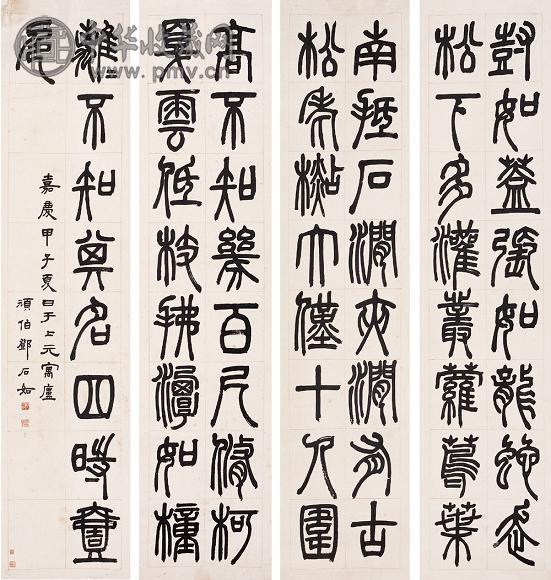 尌如蓋張如龍蛇走
松下多灌叢蘿蔦葉
南抵石澗夾澗有古
松老檆大僅十人圍
高不知幾百尺修柯
戛雲低枝拂潭如橦
離不知其名四時壹
色
嘉慶甲子夏日于上元寓廬
頑伯鄧石如
中华收藏网
www.pmv.cn